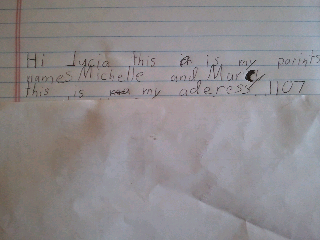 Hi Lycia this is my parints
names Michelle and Marcy
this is my aderess 1107